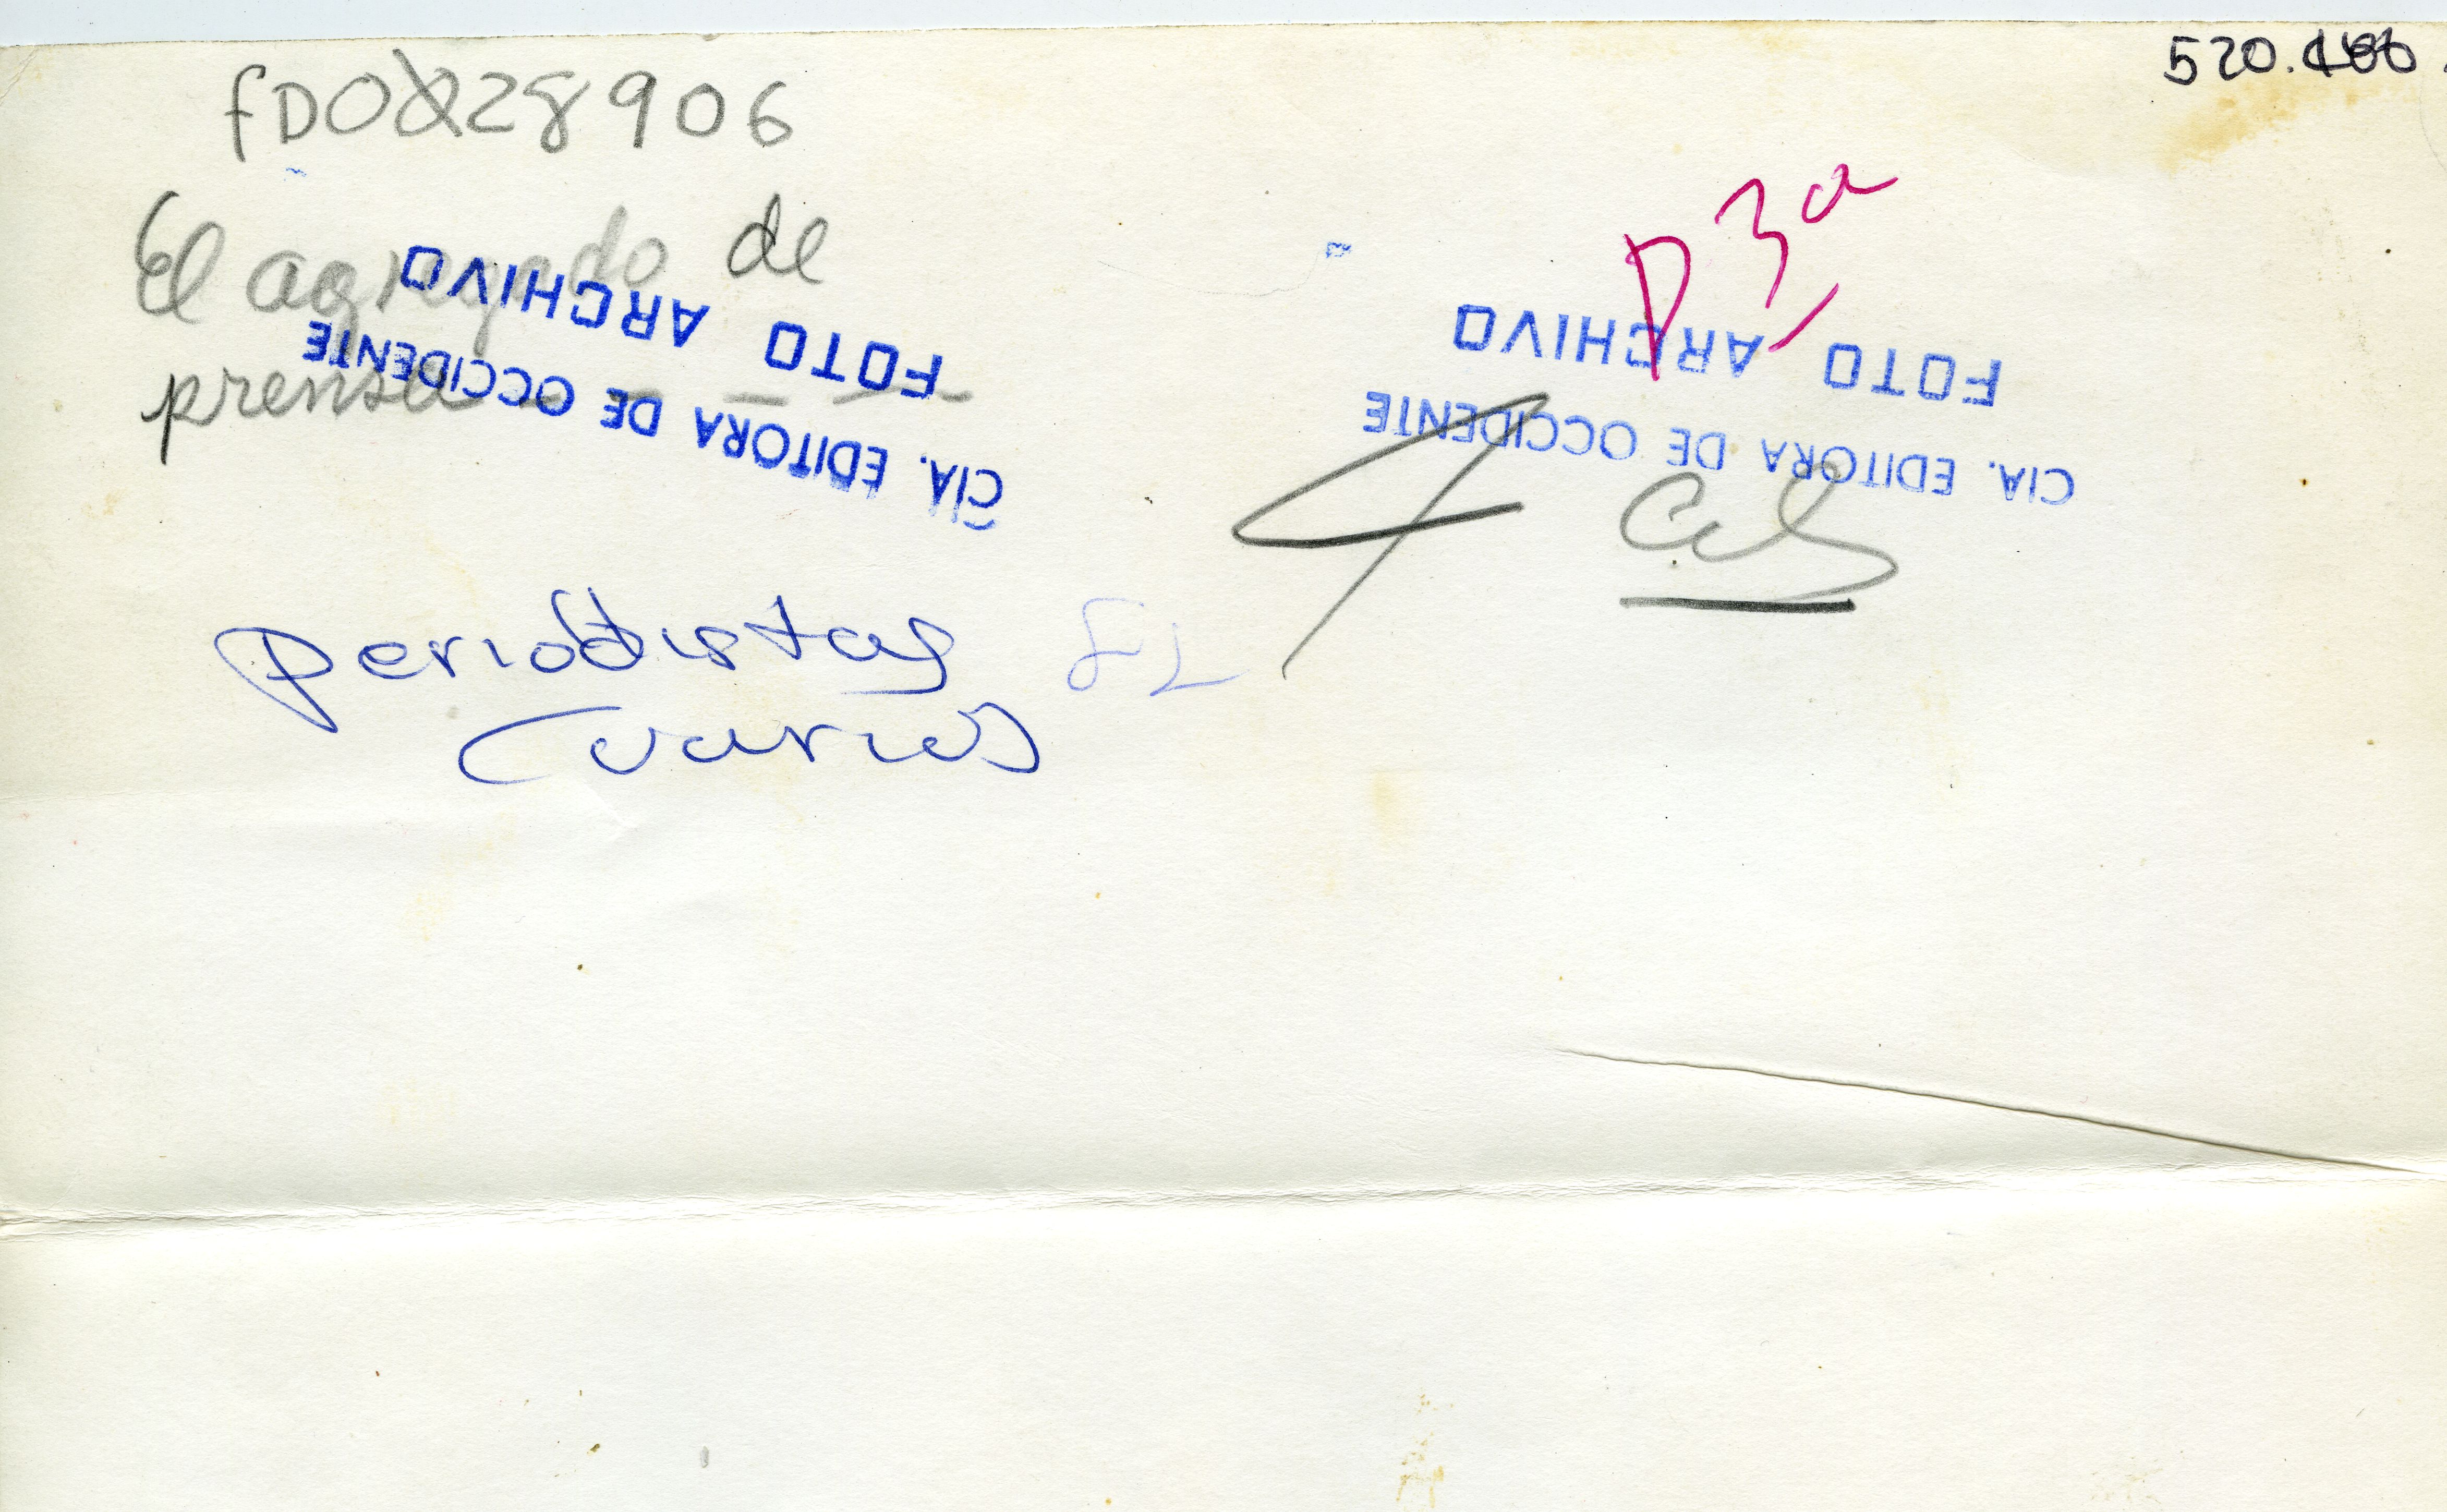 520.
fD0228906
El agregado de
prensa - - - -
FOTO ARCHIVO
CIA. EDITORA DE OCCIDENTE
P 3a
FOTO ARCHIVO
CIA. EDITORA DE OCCIDENTE
periodistas
varios